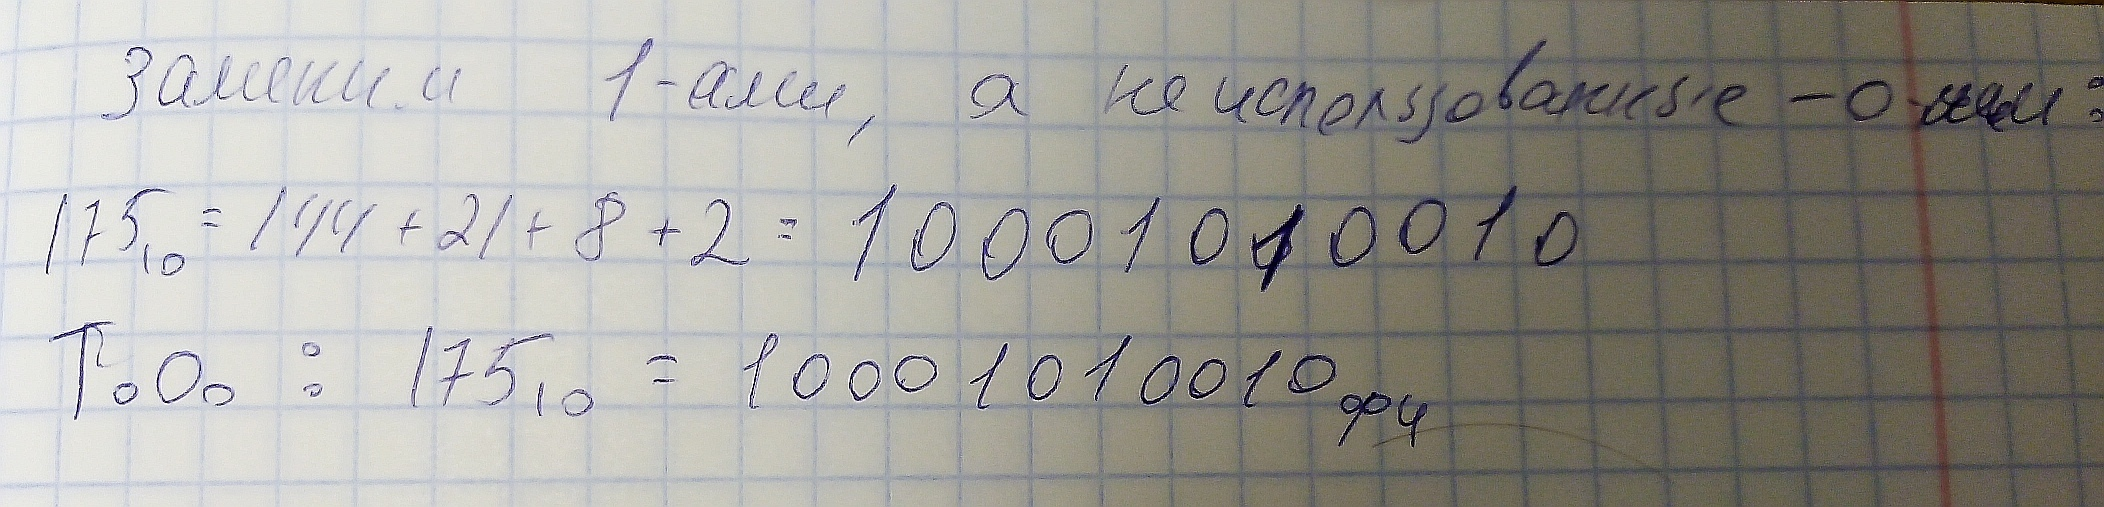 Заменим 1-ами, а неиспользованные - 0-ами:
175₁₀ = 144 + 21 + 8 + 2 = 10001010010
Т.О. : 175₁₀ = 10001010010фсч